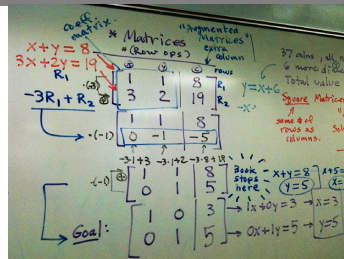 coeff. matrix.
* Matrices
* (Row ops)
"Augmented Matrices"
extra column
x+y = 8
3x+2y = 19
x y c rows
1 1 8 R₁
3 2 19 R₂
R₁ ·(-3)
-3R₁ + R₂
1 1 8
·(-1) 0 -1 -5
-3·1+3 -3·1+2 -3·8+19
·(-1)
1 1 8
0 1 5
Book stops here
x+y=8
y=5
x+5=
x=
Goal:
1 0 3 → 1x+0y=3 → x=3
0 1 5 → 0x+1y=5 → y=5
37 coins, all
6 more
Total value
y=x+6
-x
Square Matrices
same # of rows as columns.